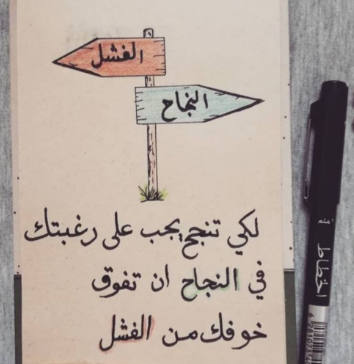 الفشل
النجاح
لكي تنجح يجب على رغبتك
في النجاح ان تفوق
خوفك من الفشل
الخطاط